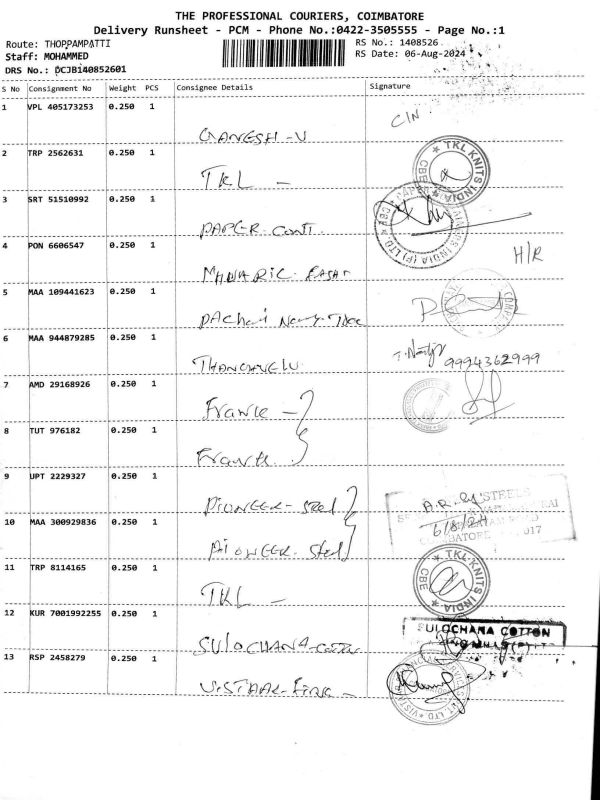 THE PROFESSIONAL COURIERS, COIMBATORE
Delivery Runsheet - PCM - Phone No.:0422-3505555 - Page No.:1
Route: THOPPAMPATTI
RS No.: 1408526
Staff: MOHAMMED
RS Date: 06-Aug-2024
DRS No.: PCJB140852601
S No Consignment No Weight PCS Consignee Details Signature
1 VPL 405173253 0.250 1 GANESH-V C/N
2 TRP 2562631 0.250 1 TKL - TKL KNITS INDIA CBE
3 SRT 51510992 0.250 1 PAPER CONT.
4 PON 6606547 0.250 1 H/R
5 MAA 109441623 0.250 1
6 MAA 944879285 0.250 1 THANGAVELU 9994362999
7 AMD 29168926 0.250 1 France -
8 TUT 976182 0.250 1 France
9 UPT 2229327 0.250 1 PIONEER-Steel STEELS
10 MAA 300929836 0.250 1 PIONEER Steel 6/8/24 COIMBATORE 017
11 TRP 8114165 0.250 1 TKL - TKL KNITS INDIA CBE
12 KUR 7001992255 0.250 1 SULOCHANA-Cotton SULOCHANA COTTON
13 RSP 2458279 0.250 1 VISTAAR-FINC -